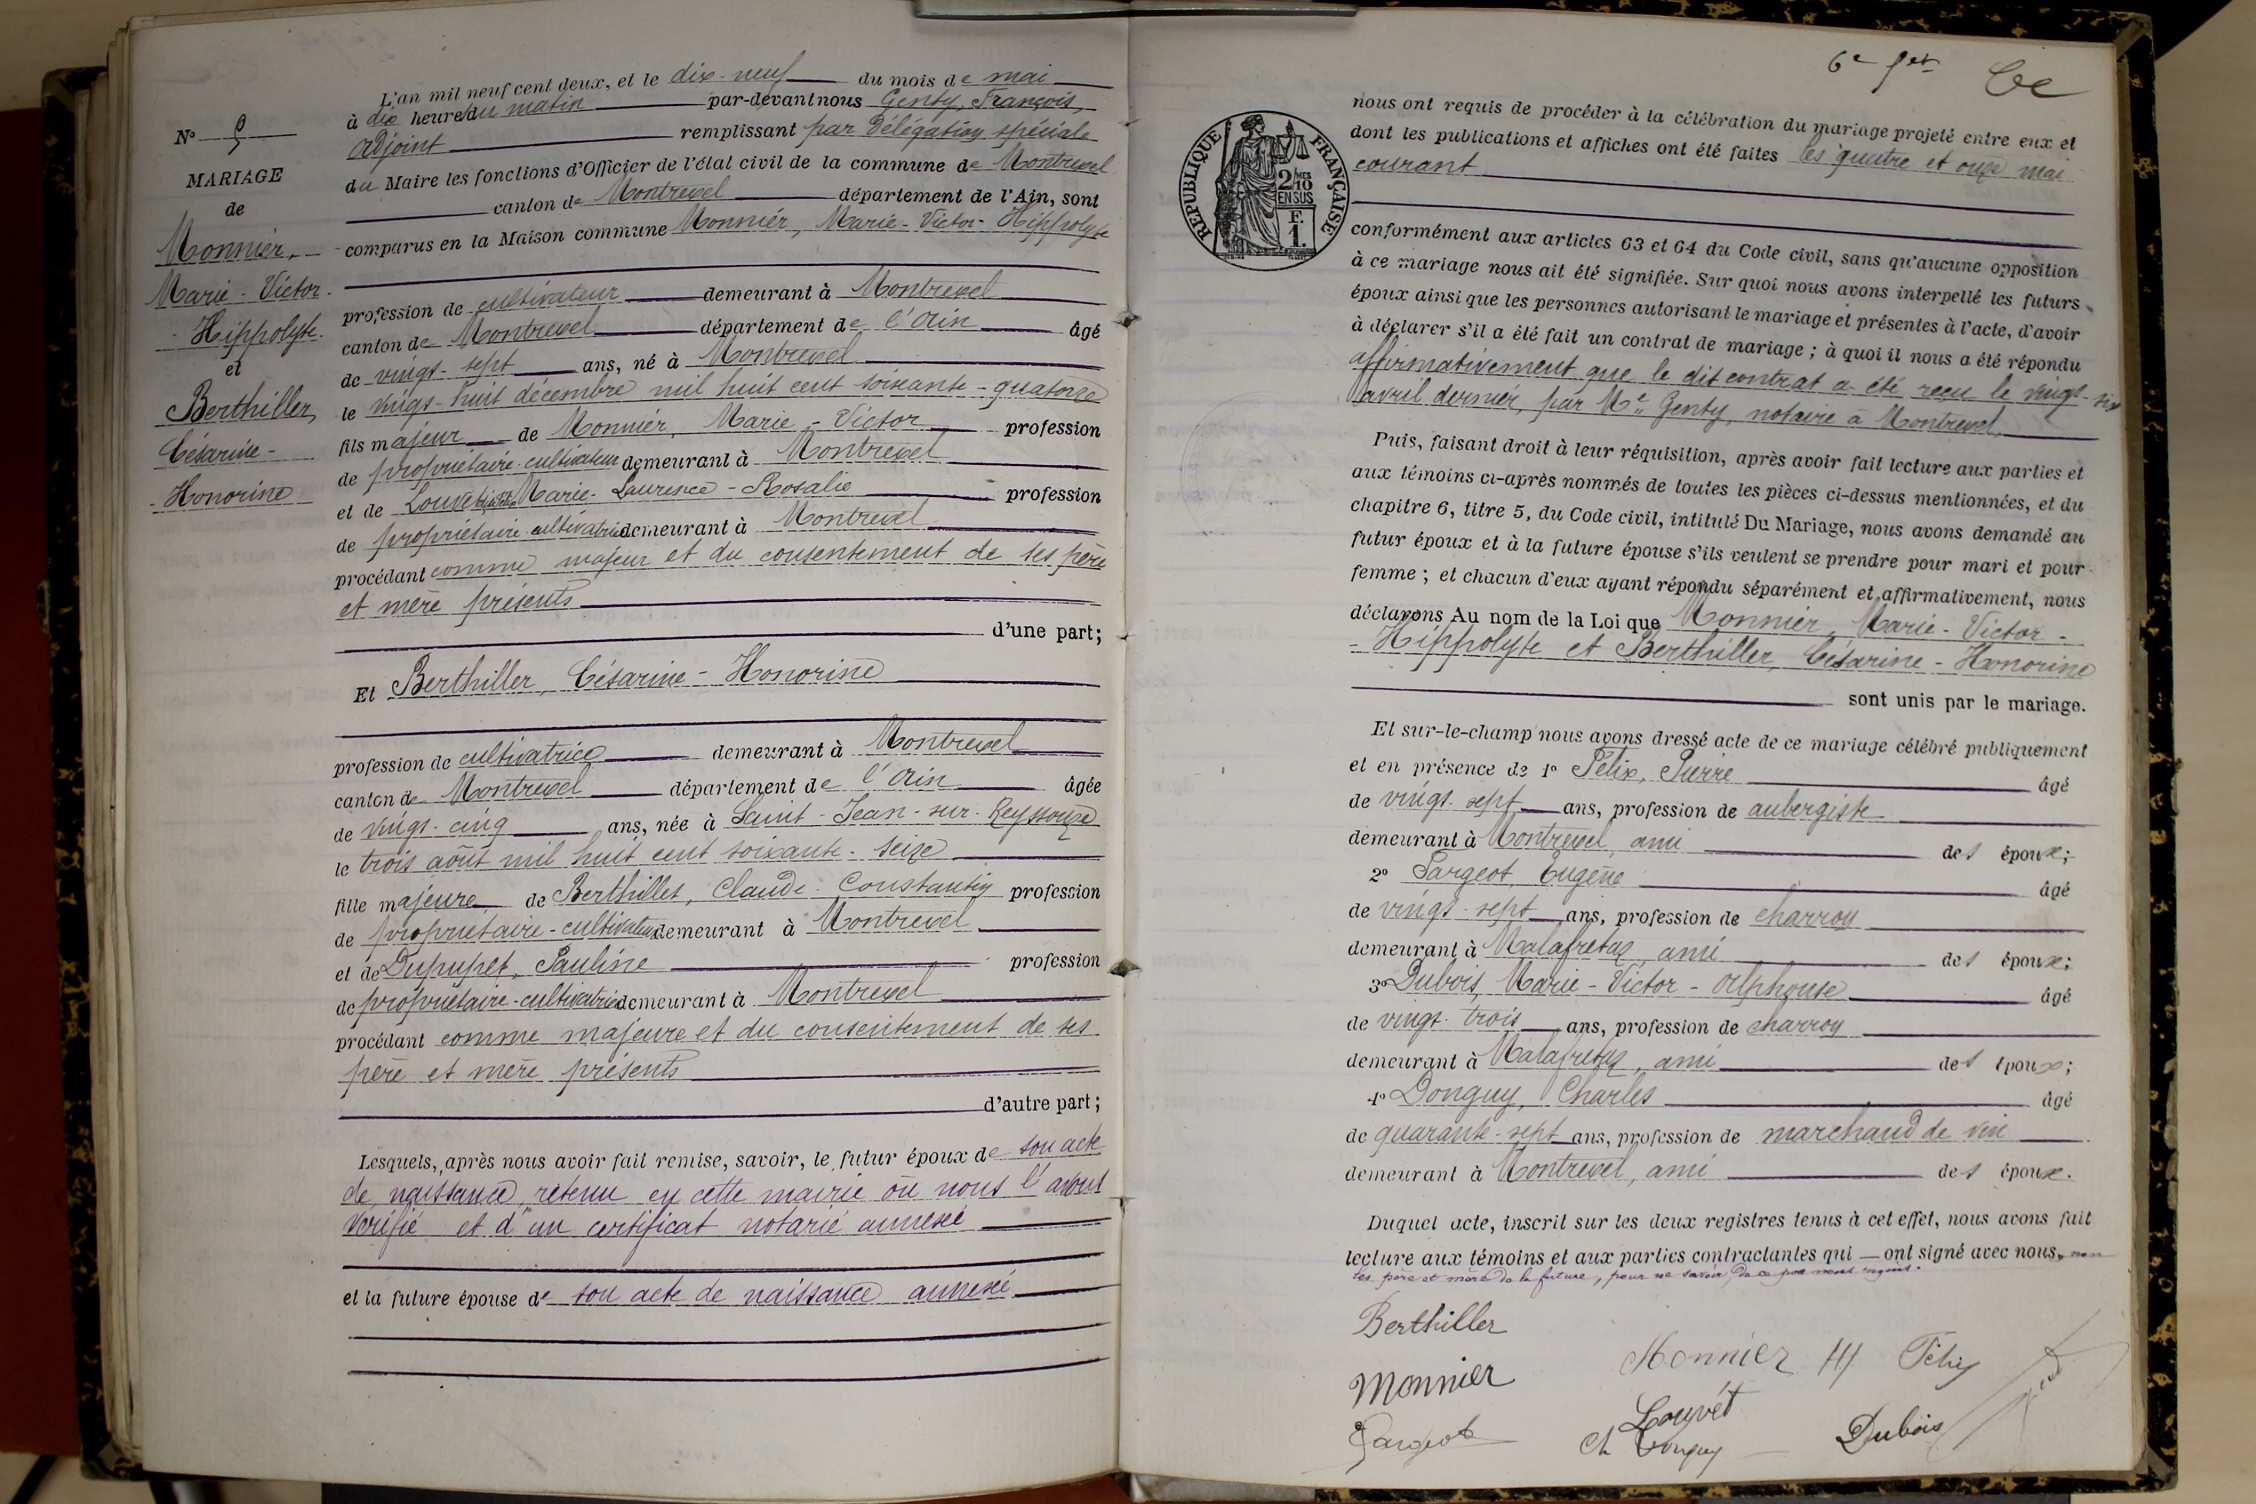 L'an mil neuf cent deux, et le dix-neuf du mois de mai
à dix heures du matin par-devant nous Genty, François,
adjoint remplissant par délégation spéciale
du Maire les fonctions d'Officier de l'état civil de la commune de Montrevel
canton de Montrevel département de l'Ain, sont
comparus en la Maison commune Monnier, Marie-Victor-Hippolyte
profession de cultivateur demeurant à Montrevel
canton de Montrevel département de l'Ain âgé
de vingt-sept ans, né à Montrevel
le vingt-huit décembre mil huit cent soixante-quatorze
fils majeur de Monnier, Marie-Victor profession
de propriétaire-cultivateur demeurant à Montrevel
et de Louvet Marie-Laurence-Rosalie profession
de propriétaire-cultivatrice demeurant à Montrevel
procédant comme majeur et du consentement de ses père
et mère présents
d'une part;
Et Berthiller, Césarine-Honorine
profession de cultivatrice demeurant à Montrevel
canton de Montrevel département de l'Ain âgée
de vingt-cinq ans, née à Saint-Jean-sur-Reyssouze
le trois août mil huit cent soixante-seize
fille majeure de Berthillet, Claude-Constantin profession
de propriétaire-cultivateur demeurant à Montrevel
et de Dupupet, Pauline profession
de propriétaire-cultivatrice demeurant à Montrevel
procédant comme majeure et du consentement de ses
père et mère présents
d'autre part;
Lesquels, après nous avoir fait remise, savoir, le futur époux de son acte
de naissance, retenu en cette mairie où nous l'avons
vérifié et d'un certificat notarié annexé
et la future épouse de son acte de naissance annexé
N°
MARIAGE
de
Monnier,
Marie-Victor-
-Hippolyte
et
Berthiller,
Césarine-
-Honorine
6e
RÉPUBLIQUE FRANÇAISE
2/10
EN SUS
F.
1.
nous ont requis de procéder à la célébration du mariage projeté entre eux et
dont les publications et affiches ont été faites les quatre et onze mai
courant
conformément aux articles 63 et 64 du Code civil, sans qu'aucune opposition
à ce mariage nous ait été signifiée. Sur quoi nous avons interpellé les futurs
époux ainsi que les personnes autorisant le mariage et présentes à l'acte, d'avoir
à déclarer s'il a été fait un contrat de mariage; à quoi il nous a été répondu
affirmativement que le dit contrat a été reçu le vingt-six
avril dernier, par Me Genty, notaire à Montrevel
Puis, faisant droit à leur réquisition, après avoir fait lecture aux parties et
aux témoins ci-après nommés de toutes les pièces ci-dessus mentionnées, et du
chapitre 6, titre 5, du Code civil, intitulé Du Mariage, nous avons demandé au
futur époux et à la future épouse s'ils veulent se prendre pour mari et pour
femme; et chacun d'eux ayant répondu séparément et affirmativement, nous
déclarons Au nom de la Loi que Monnier, Marie-Victor-
-Hippolyte et Berthiller, Césarine-Honorine
sont unis par le mariage.
Et sur-le-champ nous avons dressé acte de ce mariage célébré publiquement
et en présence de 1° Félix, Pierre âgé
de vingt-sept ans, profession de aubergiste
demeurant à Montrevel, ami des époux;
2° Pargeot, Eugène âgé
de vingt-sept ans, profession de charron
demeurant à Malafretaz, ami des époux;
3° Dubois, Marie-Victor-Alphonse âgé
de vingt-trois ans, profession de charron
demeurant à Malafretaz, ami des époux;
4° Donguy, Charles âgé
de quarante-sept ans, profession de marchand de vin
demeurant à Montrevel, ami des époux.
Duquel acte, inscrit sur les deux registres tenus à cet effet, nous avons fait
lecture aux témoins et aux parties contractantes qui ont signé avec nous, non
les père et mère de la future, pour ne savoir de ce par nous requis.
Berthiller
Monnier H Félix
Monnier
Louvét
Pargeot Ch Donguy Dubois